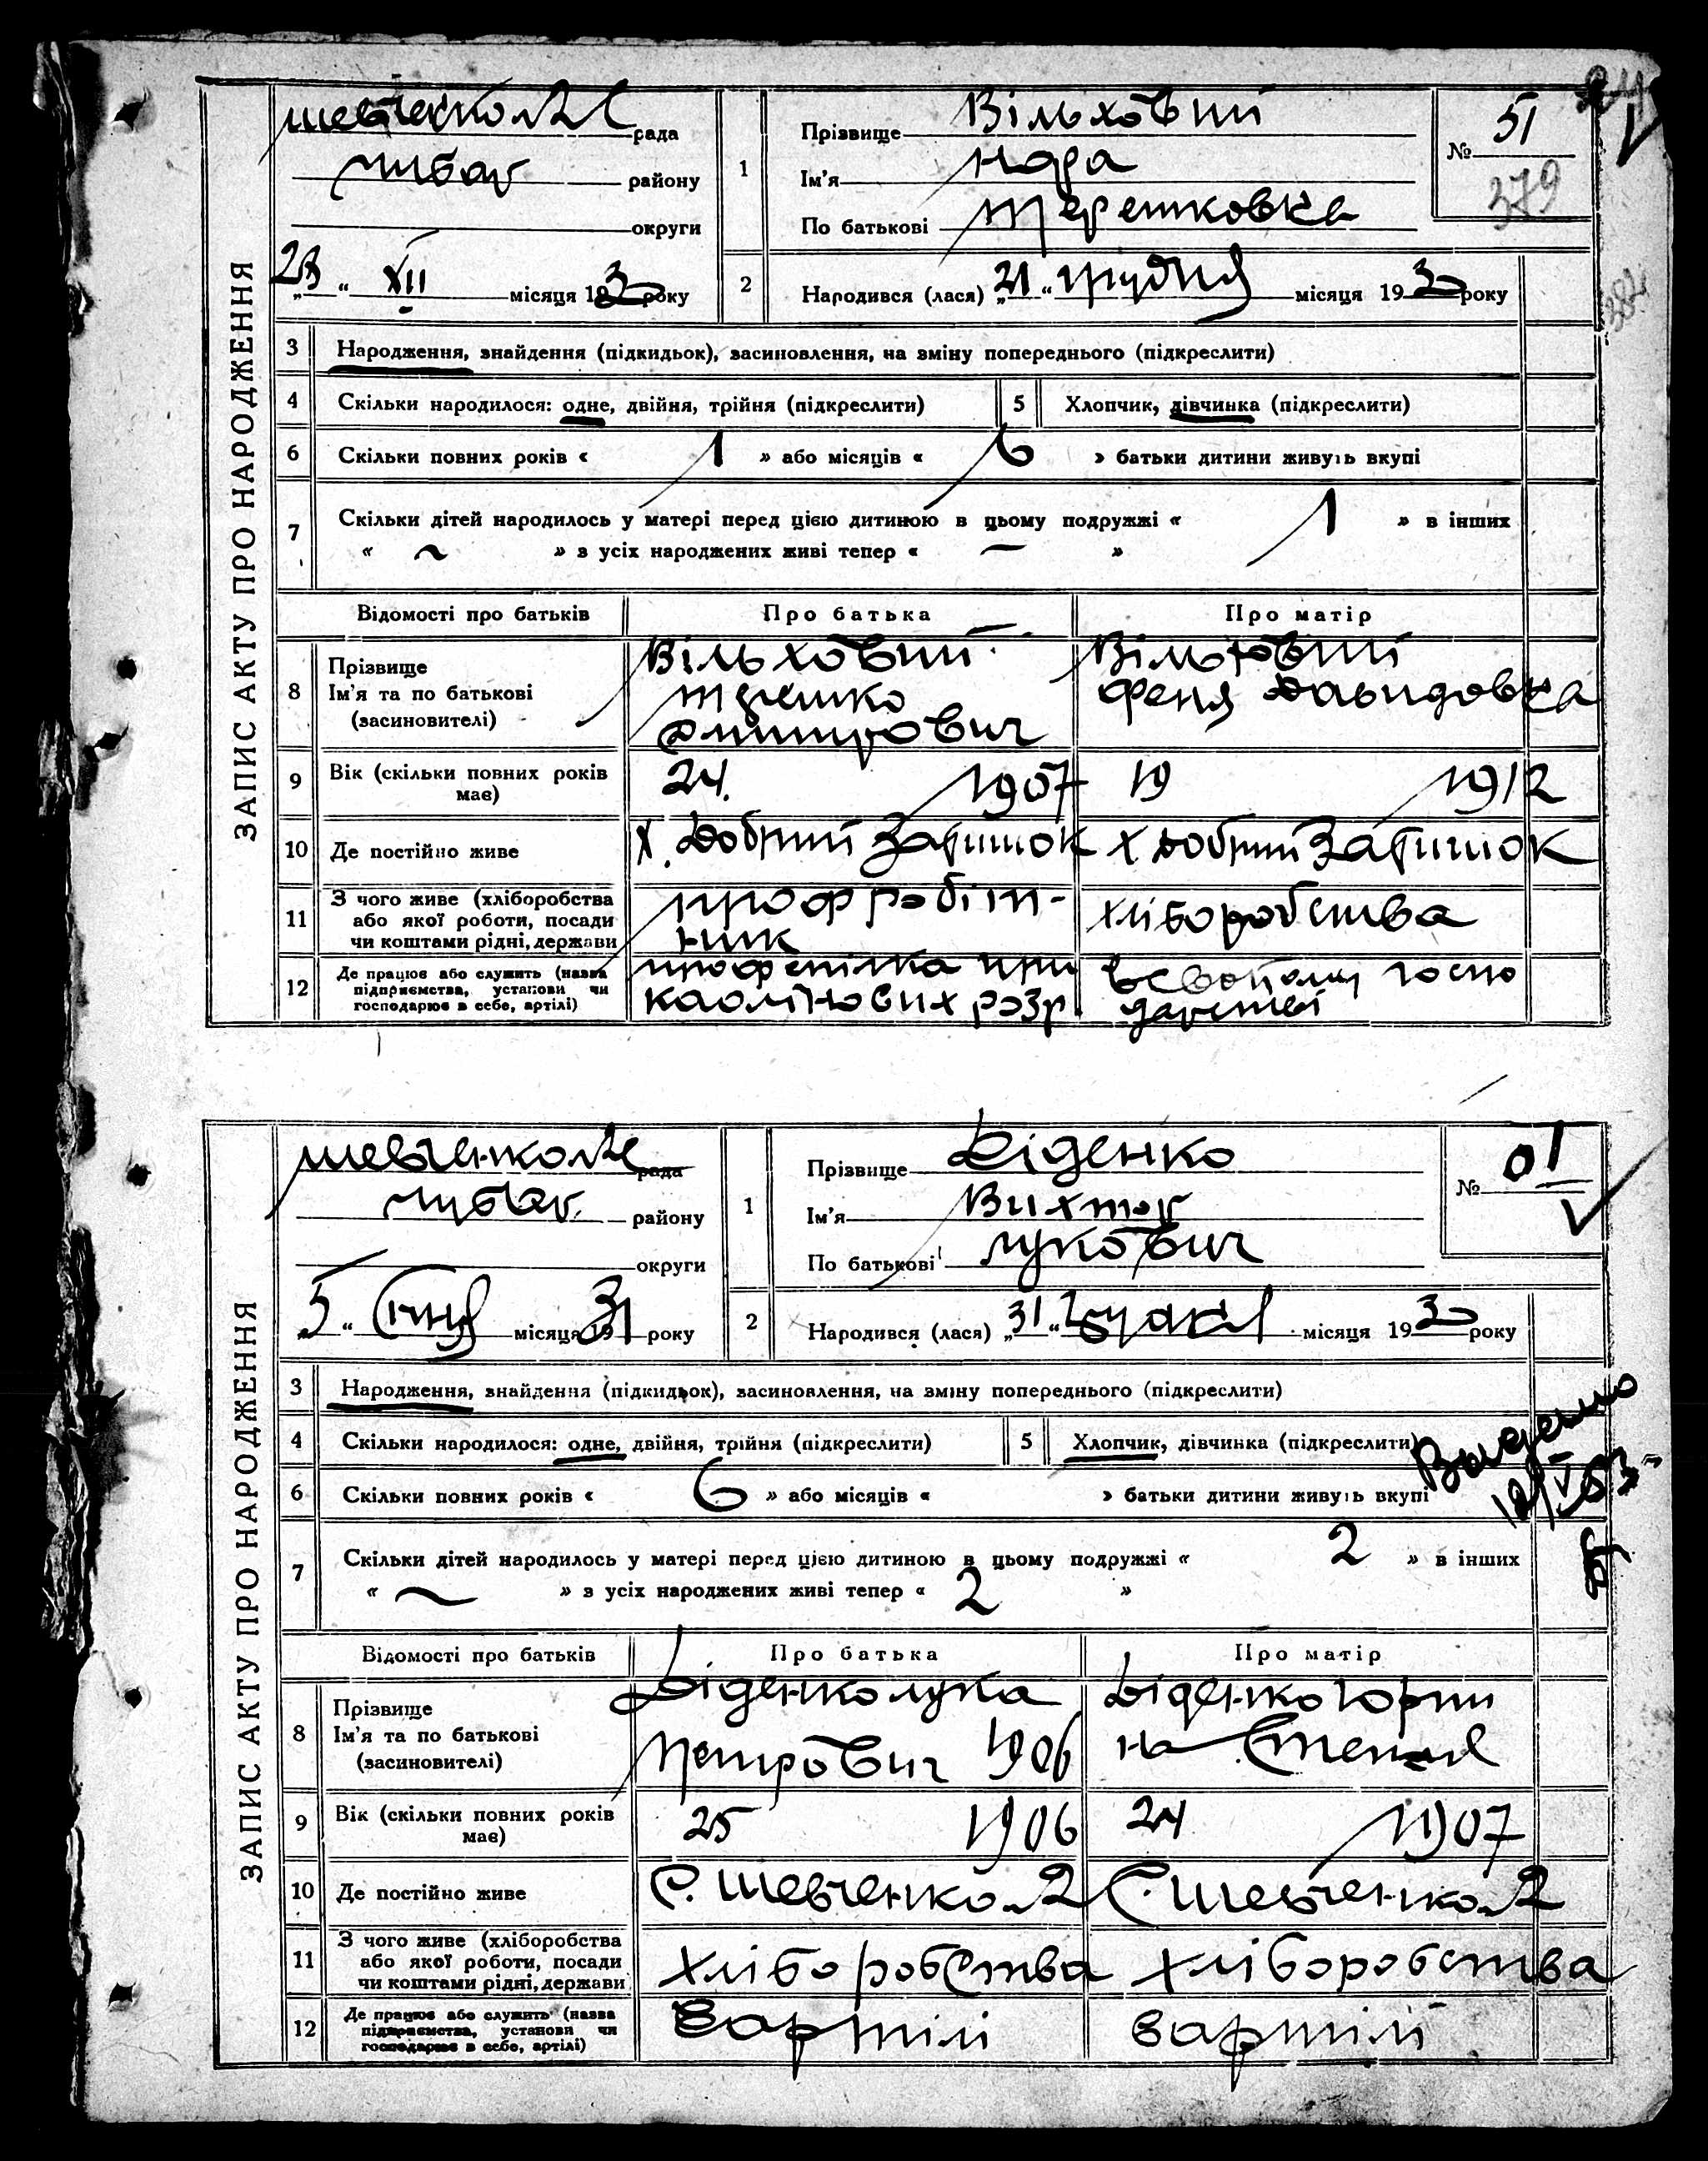 ЗАПИС АКТУ ПРО НАРОДЖЕННЯ
рада
району
округи
23 " XII місяця 193 року
1
Прізвище Вільховий
Ім'я
По батькові Терешковна
№ 51
379
2
Народився (лася) „21 " грудня місяця 193 року
3 Народження, знайдення (підкидьок), засиновлення, на зміну попереднього (підкреслити)
4 Скільки народилося: одне, двійня, трійня (підкреслити)
5 Хлопчик, дівчинка (підкреслити)
6 Скільки повних років « 1 » або місяців « 6 » батьки дитини живуть вкупі
7 Скільки дітей народилось у матері перед цією дитиною в цьому подружжі « 1 » в інших
« ~ » з усіх народжених живі тепер « — »
Відомості про батьків Про батька Про матір
8 Прізвище
Ім'я та по батькові
(засиновителі)
Вільховий
Терешко
Дмитрович
Вільховий
Феня Давидовна
9 Вік (скільки повних років
має)
24. 1907
19 1912
10 Де постійно живе
х. Добрий Затишок
х Добрий Затишок
11 З чого живе (хліборобства
або якої роботи, посади
чи коштами рідні, держави
проф робіт-
ник
хліборобства
12 Де працює або служить (назва
підприємства, установи чи
господарює в себе, артілі)
профспілка при
каолінових розр.
в своєму госпо
дарстві
ЗАПИС АКТУ ПРО НАРОДЖЕННЯ
Шевченко №2 рада
району
округи
„5 " січня місяця 1931 року
1
Прізвище Діденко
Ім'я Вихтор
По батькові Лукович
№ 01
2
Народився (лася) „31 " місяця 193 року
3 Народження, знайдення (підкидьок), засиновлення, на зміну попереднього (підкреслити)
4 Скільки народилося: одне, двійня, трійня (підкреслити)
5 Хлопчик, дівчинка (підкреслити)
6 Скільки повних років « 6 » або місяців « » батьки дитини живуть вкупі
7 Скільки дітей народилось у матері перед цією дитиною в цьому подружжі « 2 » в інших
« ~ » з усіх народжених живі тепер « 2 »
Відомості про батьків Про батька Про матір
8 Прізвище
Ім'я та по батькові
(засиновителі)
Діденко Лука
Петрович 1906
Діденко Горпи
на
9 Вік (скільки повних років
має)
25 1906
24 1907
10 Де постійно живе
С. Шевченко №2
С. Шевченко №2
11 З чого живе (хліборобства
або якої роботи, посади
чи коштами рідні, держави
хліборобства
хліборобства
12 Де працює або служить (назва
підприємства, установи чи
господарює в себе, артілі)
в артілі
в артілі